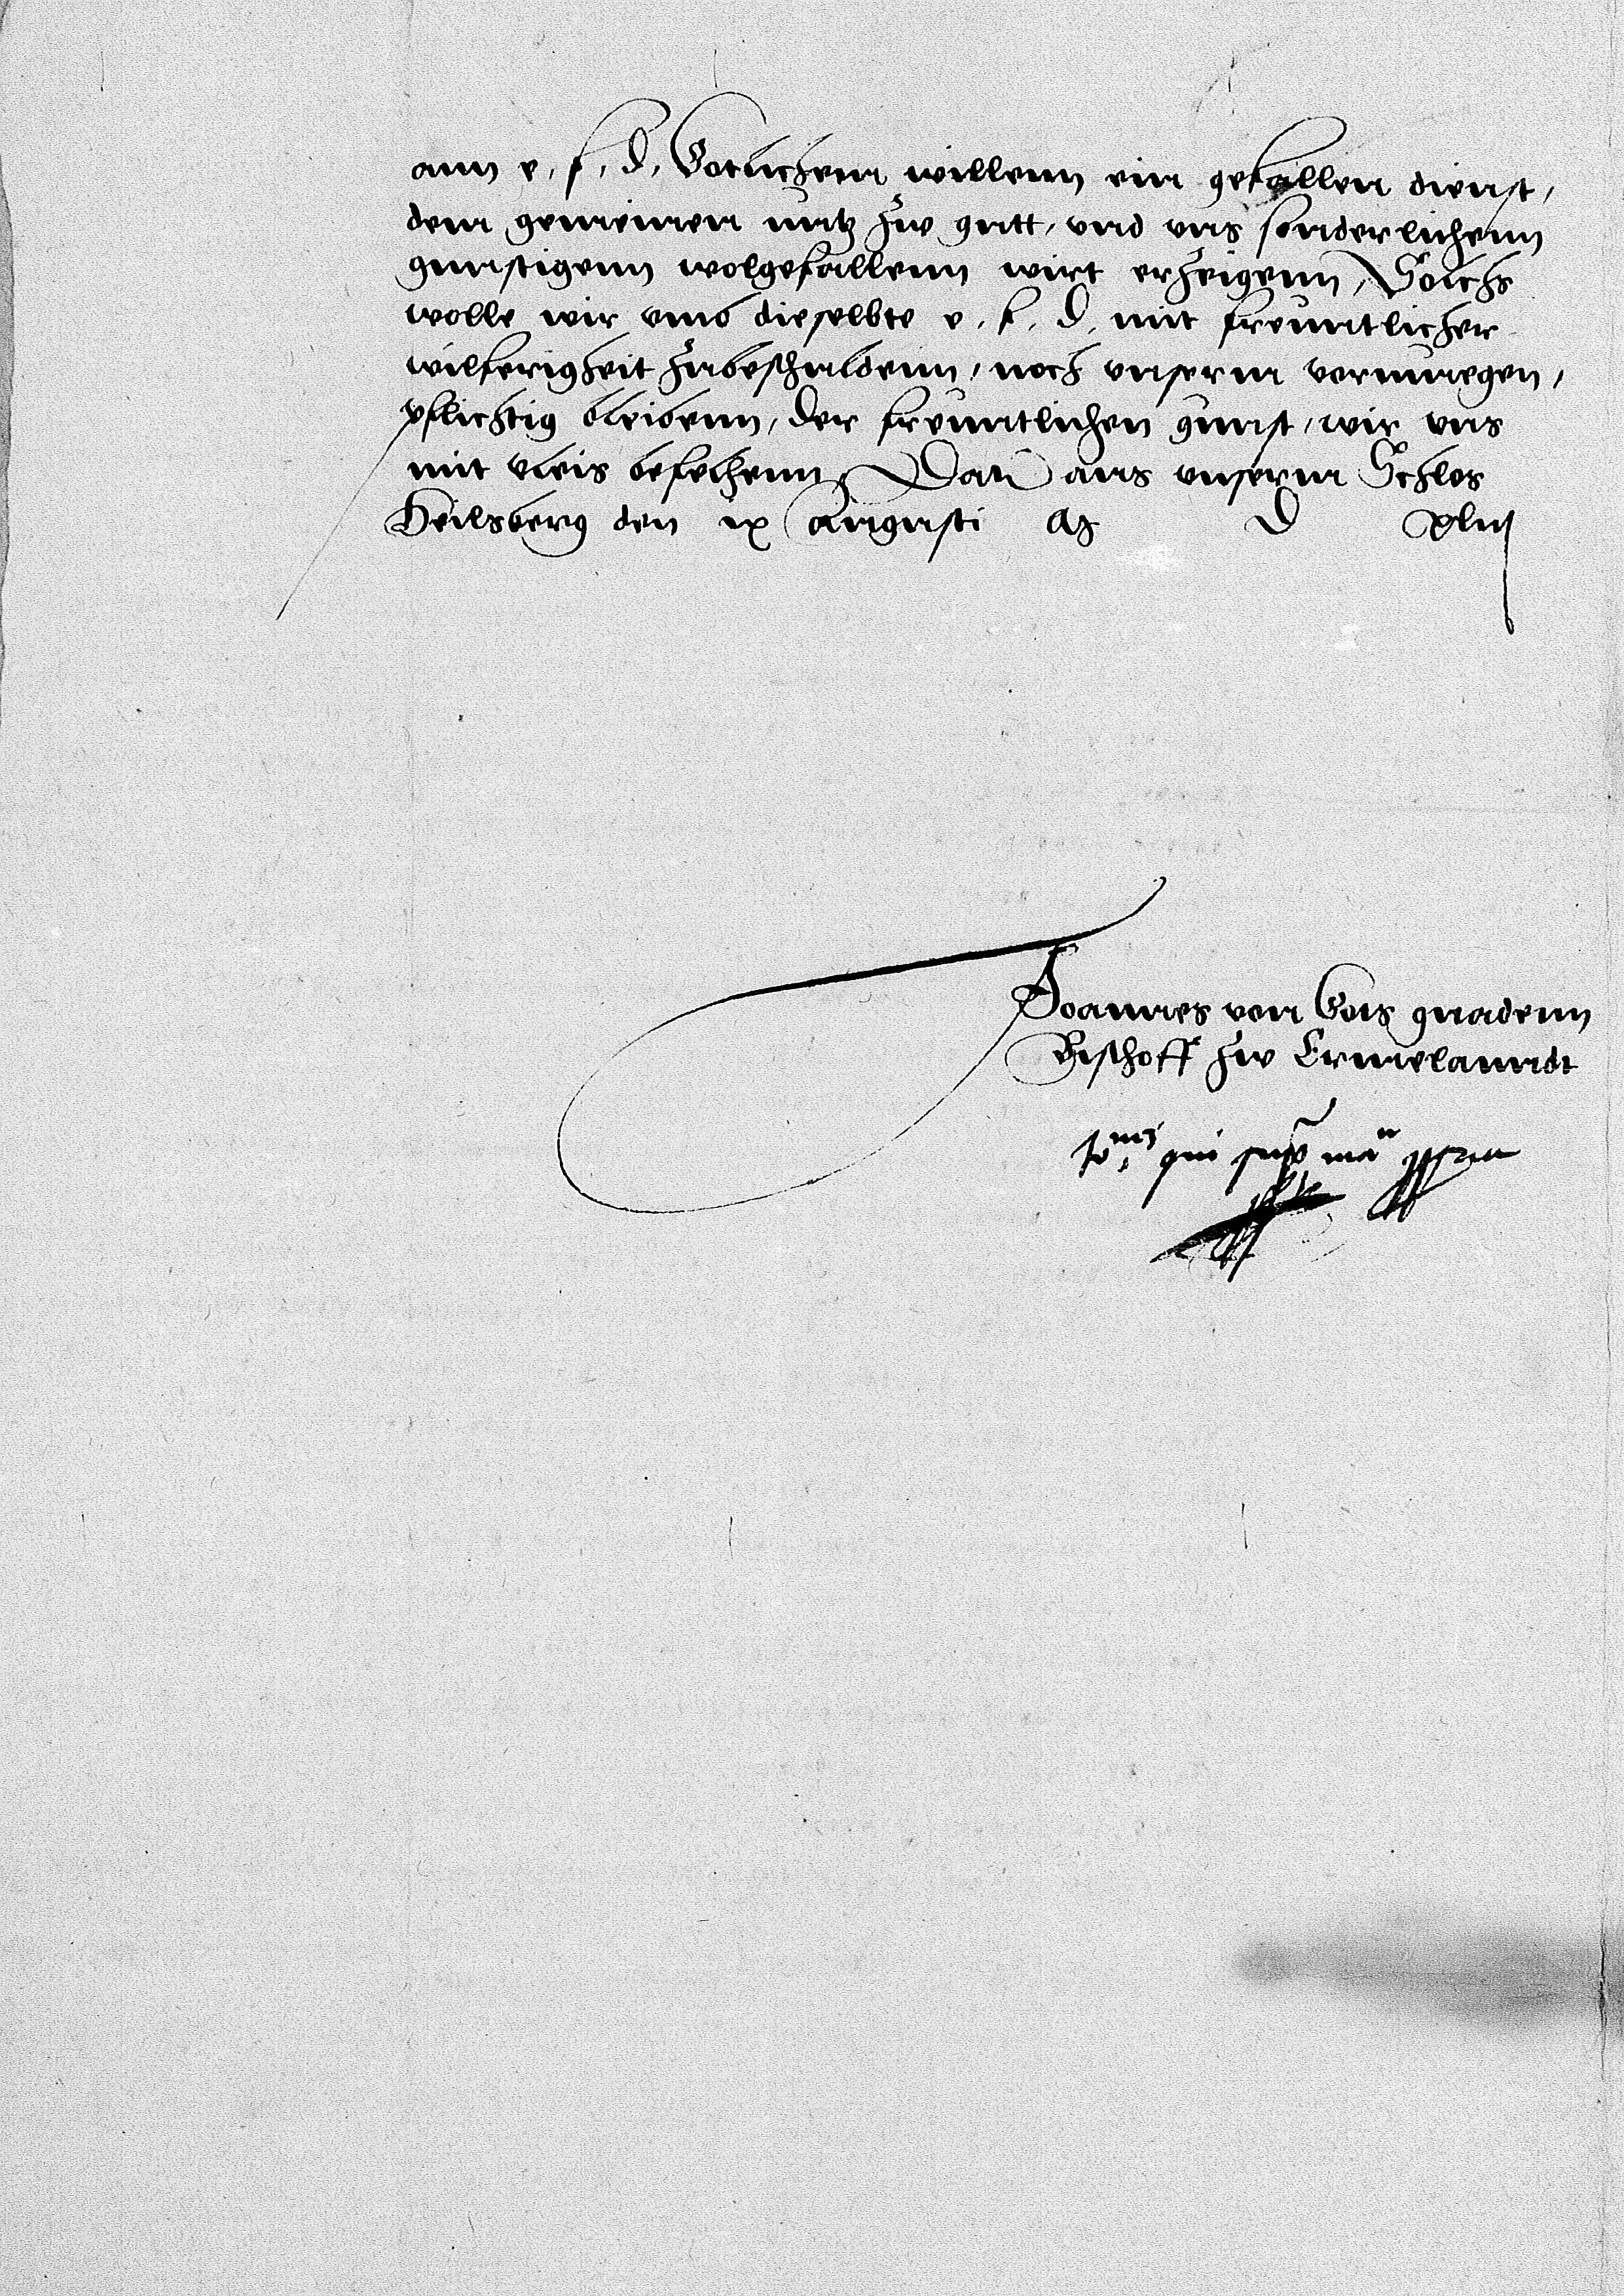 ann e. f. d. Gotlichenn willenn ein gefallen dienst,
dem gemeinen nutz zw gutt, vnd vns sonderlichenn
gunstigenn wolgefallenn wirt erzeigenn, Solchs
wolle wir vmb dieselbte e. f. d. mit freuntlicher
wilferigheit zubeschuldenn, noch vnserm vormuegen,
pflichtig bleibenn, der freuntlichen gunst, wir vns
mit vleis befelhenn, Dat aus vnserm Schlos
Heilsberg den ix Augusti M D xliij
Joannes von Gots gnadenn
Bischoff zw Ermelanndt
qui ma